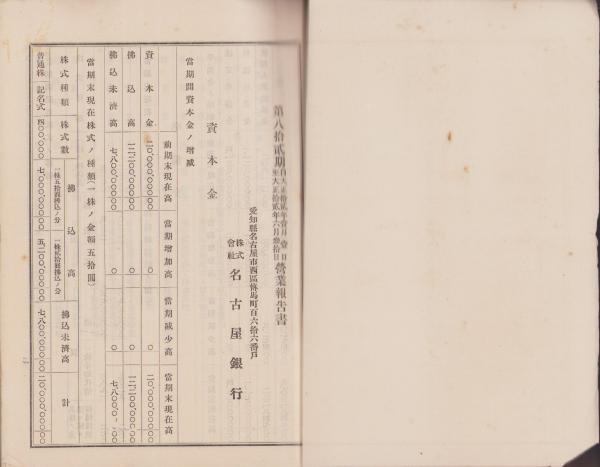 第八拾貳期 自大正拾貳年壹月壹日 至大正拾貳年六月參拾日 營業報告書
愛知縣名古屋市西區傳馬町百六拾六番戶
株式會社 名古屋銀行
資本金
當期間資本金ノ增減
前期末現在高 當期增加高 當期減少高 當期末現在高
資本金 二〇、〇〇〇、〇〇〇 〇 〇 二〇、〇〇〇、〇〇〇
拂込高 一二、二〇〇、〇〇〇 〇 〇 一二、二〇〇、〇〇〇
拂込未濟高 七、八〇〇、〇〇〇 〇 〇 七、八〇〇、〇〇〇
當期末現在株式ノ種類(一株ノ金額五拾圓)
株式種類 株式數 拂込高 拂込未濟高 計
一株五拾圓拂込ノ分 一株貳拾圓拂込ノ分
普通株 記名式 四〇〇、〇〇〇 七、〇〇〇、〇〇〇 五、二〇〇、〇〇〇 七、八〇〇、〇〇〇 二〇、〇〇〇、〇〇〇